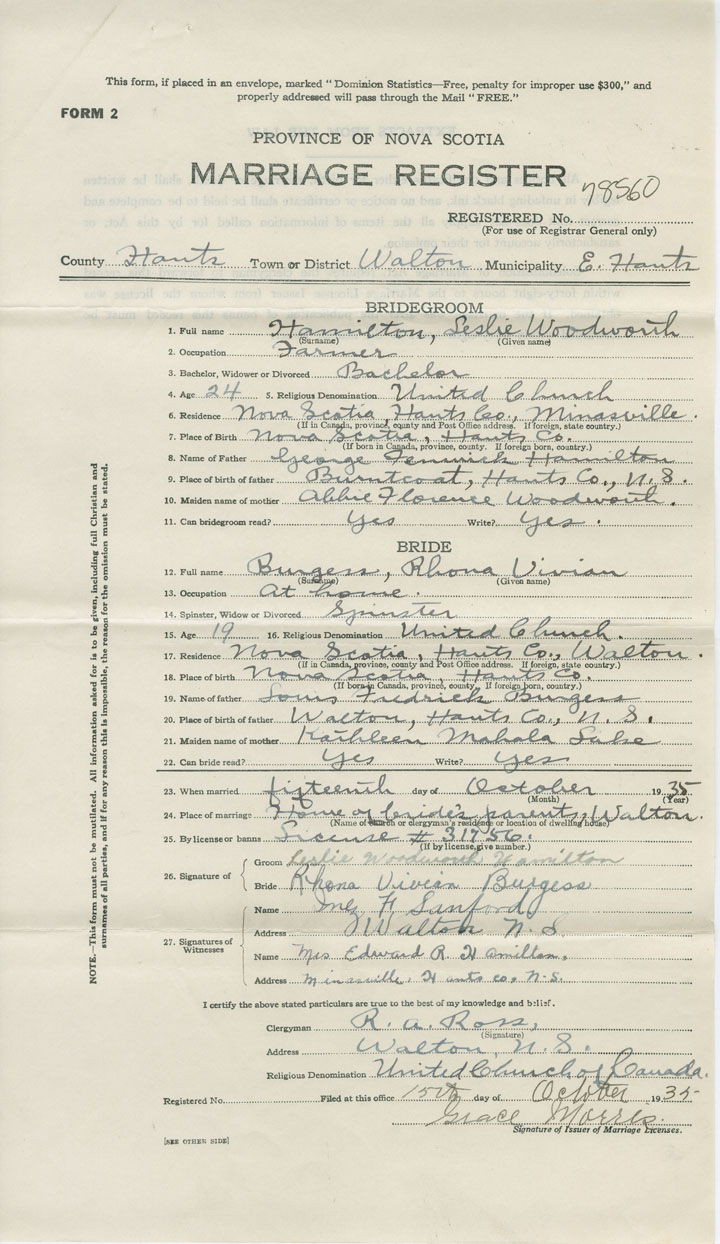 This form, if placed in an envelope, marked “ Dominion Statistics—Free, penalty for improper use $300,” and
properly addressed will pass through the Mail “ FREE.”
FORM 2
PROVINCE OF NOVA SCOTIA
MARRIAGE REGISTER
78560
REGISTERED No.
(For use of Registrar General only)
County Hants Town or District Walton Municipality E. Hants
BRIDEGROOM
1. Full name Hamilton, Leslie Woodworth
(Surname) (Given name)
2. Occupation Farmer
3. Bachelor, Widower or Divorced Bachelor
4. Age 24 5. Religious Denomination United Church
6. Residence Nova Scotia, Hants Co., Minasville.
(If in Canada, province, county and Post Office address. If foreign, state country.)
7. Place of Birth Nova Scotia, Hants Co.
(If born in Canada, province, county. If foreign born, country.)
8. Name of Father George Fenwick Hamilton
9. Place of birth of father Burntcoat, Hants Co., N.S.
10. Maiden name of mother Abbie Florence Woodworth.
11. Can bridegroom read? Yes Write? Yes.
BRIDE
12. Full name Burgess, Rhona Vivian
(Surname) (Given name)
13. Occupation At home.
14. Spinster, Widow or Divorced Spinster
15. Age 19 16. Religious Denomination United Church.
17. Residence Nova Scotia, Hants Co., Walton.
(If in Canada, province, county and Post Office address. If foreign, state country.)
18. Place of birth Nova Scotia, Hants Co.
(If born in Canada, province, county. If foreign born, country.)
19. Name of father Louis Fredrick Burgess
20. Place of birth of father Walton, Hants Co., N.S.
21. Maiden name of mother Kathleen Mahala 
22. Can bride read? Yes Write? Yes
23. When married fifteenth day of October 1935
(Month) (Year)
24. Place of marriage Home of bride's parents, Walton.
(Name of church or clergyman's residence or location of dwelling house)
25. By license or banns License # 31756.
(If by license, give number.)
26. Signature of
Groom Leslie Woodworth Hamilton
Bride Rhona Vivian Burgess
27. Signatures of Witnesses
Name Inez H Sanford
Address Walton N.S.
Name Mrs Edward R. Hamilton,
Address Minasville, Hants co, N.S.
I certify the above stated particulars are true to the best of my knowledge and belief.
Clergyman R. A. Ross,
(Signature)
Address Walton, N.S.
Religious Denomination United Church of Canada.
Registered No. Filed at this office 15th day of October 1935
Grace Morris.
Signature of Issuer of Marriage Licenses.
[SEE OTHER SIDE]
NOTE.—This form must not be mutilated. All information asked for is to be given, including full Christian and
surnames of all parties, and if for any reason this is impossible, the reason for the omission must be stated.